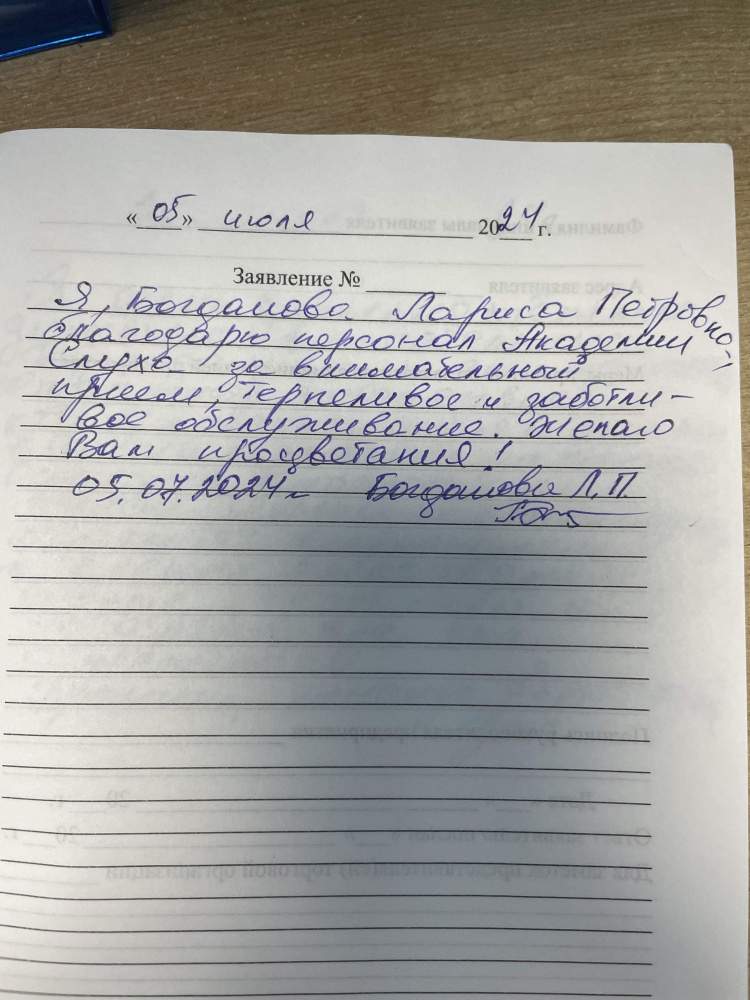 « 05 » июля 2024 г.
Заявление №
Я, Богданова Лариса Петровна,
благодарю персонал Академии
Слуха за внимательный
прием, терпеливое и заботли-
вое обслуживание. Желаю
Вам процветания!
05.07.2024г Богданова Л.П.